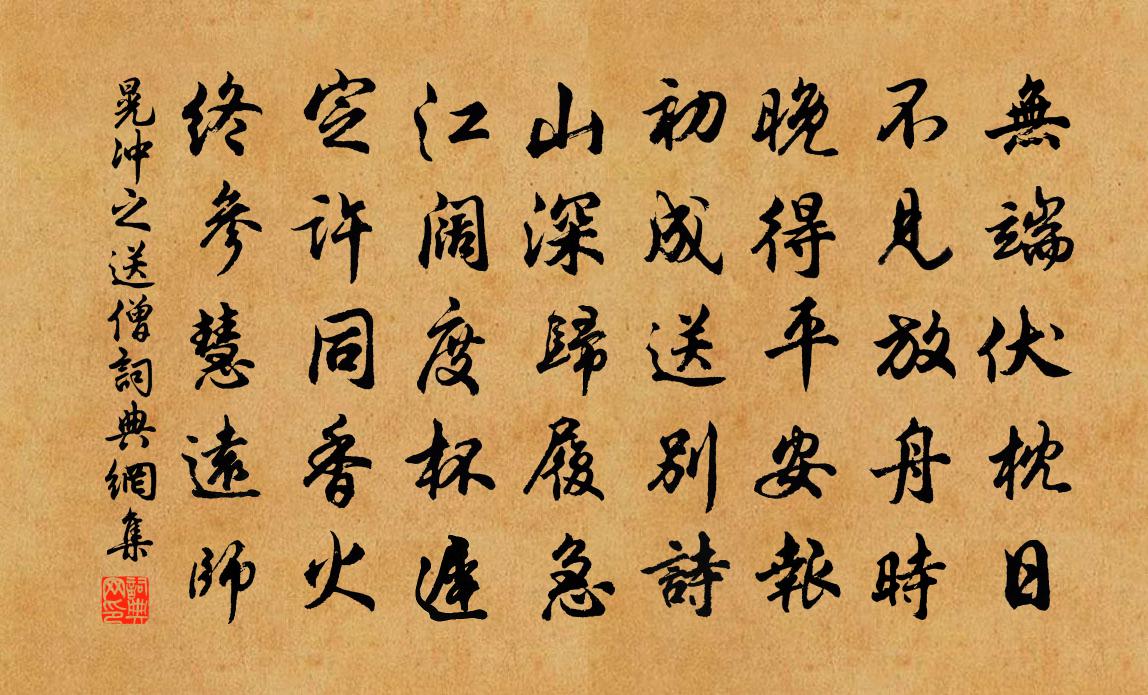 無端伏枕日
不見放舟時
晚得平安報
初成送別詩
山深歸履急
江闊度杯遲
定許同香火
終參慧遠師
晁沖之送僧詞典網集
詞典网印